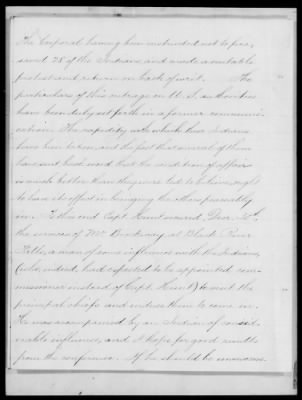 The Corporal having been instructed not to fire,
saved 28 of the Indians and made a suitable
protest and return on back of writ. The
particulars of this outrage on U. S. authorities
have been duly set forth in a former communi-
cation. The rapidity with which these Indians
have been taken and the fact that several of them
have sent back word that the condition of affairs
is much better than they were led to believe, ought
to have its effect in bringing the others peaceably
in. To this end Capt. Hunt secured, Dec. 26th,
the services of Mr. at Black River
Falls, a man of some influence with the Indians,
(who, indeed, had expected to be appointed com-
missioner instead of Capt. Hunt) to visit the
principal chiefs and induce them to come in.
He was accompanied by an Indian of consid-
erable influence, and I hope for good results
from the conference. If he should be unsuccess-